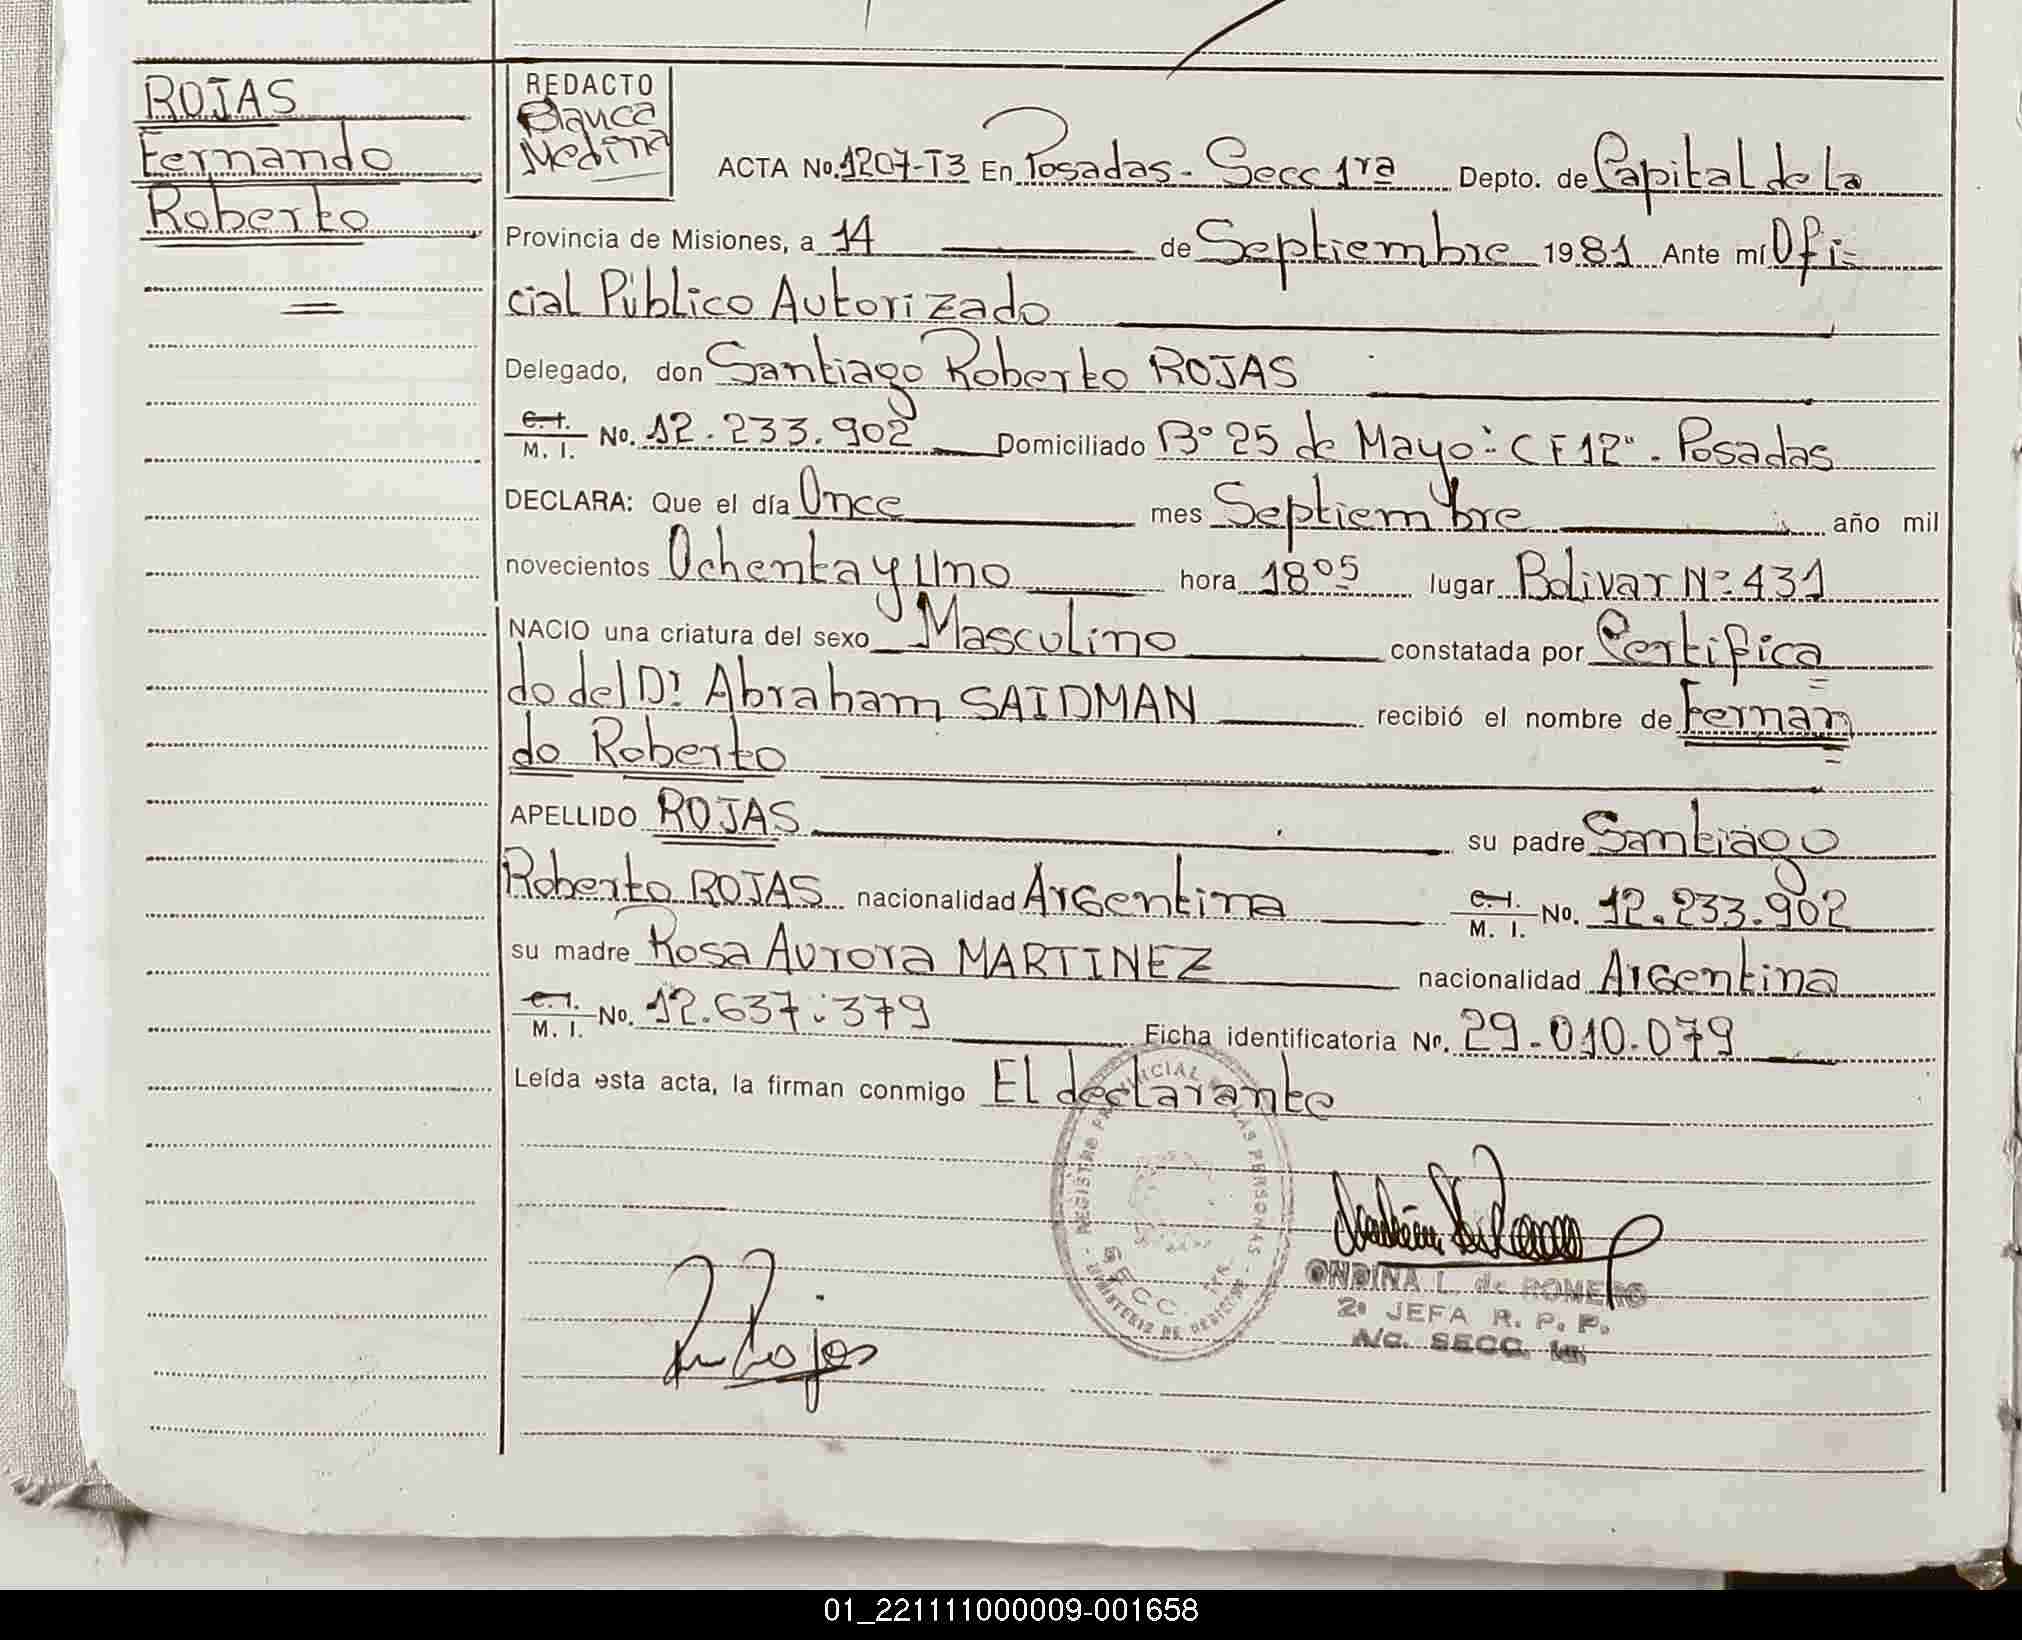 ROJAS
Fernando
Roberto
REDACTO
Blanca
Medina
ACTA No. 1207-T3 En Posadas - Secc 1ra Depto. de Capital de la
Provincia de Misiones, a 14 de Septiembre 1981 Ante mí Ofi=
cial Público Autorizado
Delegado, don Santiago Roberto ROJAS
C. I.
M. I. No. 12.233.902 Domiciliado Bº 25 de Mayo: CF12". Posadas
DECLARA: Que el día Once mes Septiembre año mil
novecientos Ochenta y Uno hora 18º5 lugar Bolivar Nº 431
NACIO una criatura del sexo Masculino constatada por Certifica
do del Dr Abraham SAIDMAN recibió el nombre de Fernan
do Roberto
APELLIDO ROJAS su padre Santiago
Roberto ROJAS nacionalidad Argentina C. I.
M. I. No. 12.233.902
su madre Rosa Aurora MARTINEZ nacionalidad Argentina
C. I.
M. I. No. 12.637.379 Ficha identificatoria No. 29.010.079
Leída esta acta, la firman conmigo El declarante
REGISTRO PROVINCIAL DE LAS PERSONAS
SECC. 1ra.
Rojas
ONDINA L. de ROMERO
2º JEFA R. P. P.
A/C. SECC. 1ra
01_221111000009-001658